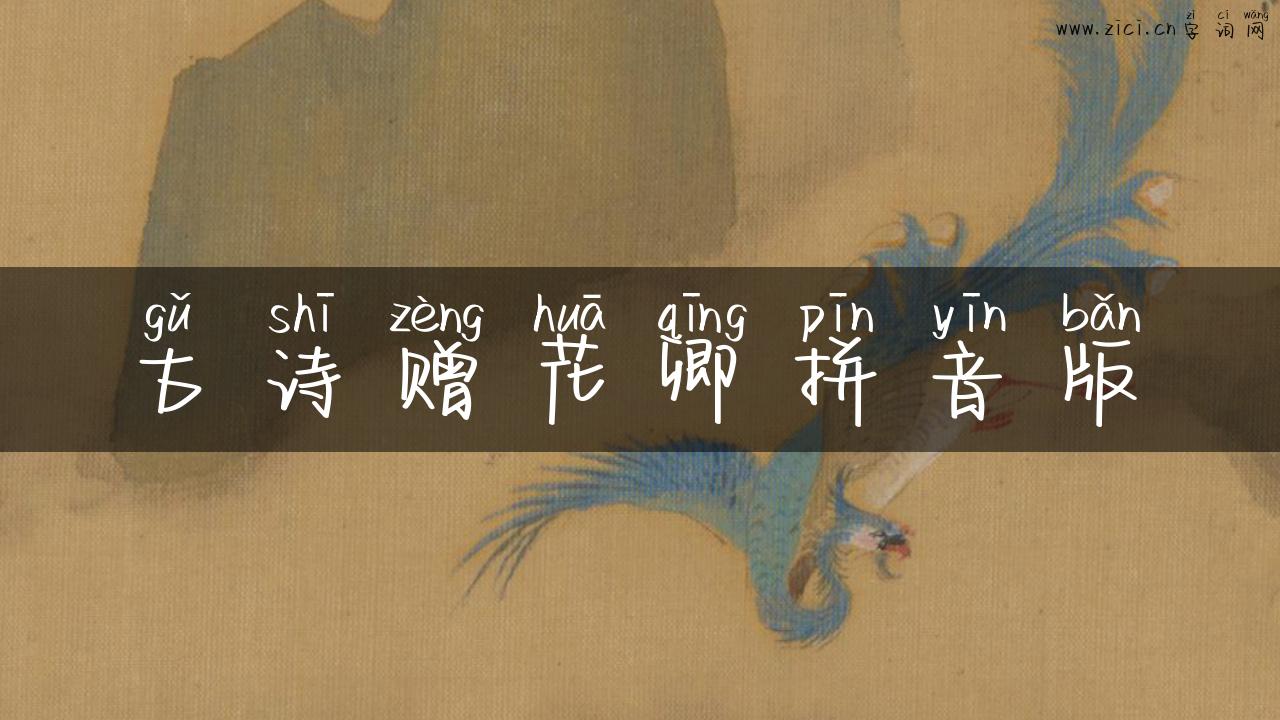 zì cí wǎng
www.zici.cn 字词网
gǔ shī zèng huā qīng pīn yīn bǎn
古诗赠花卿拼音版